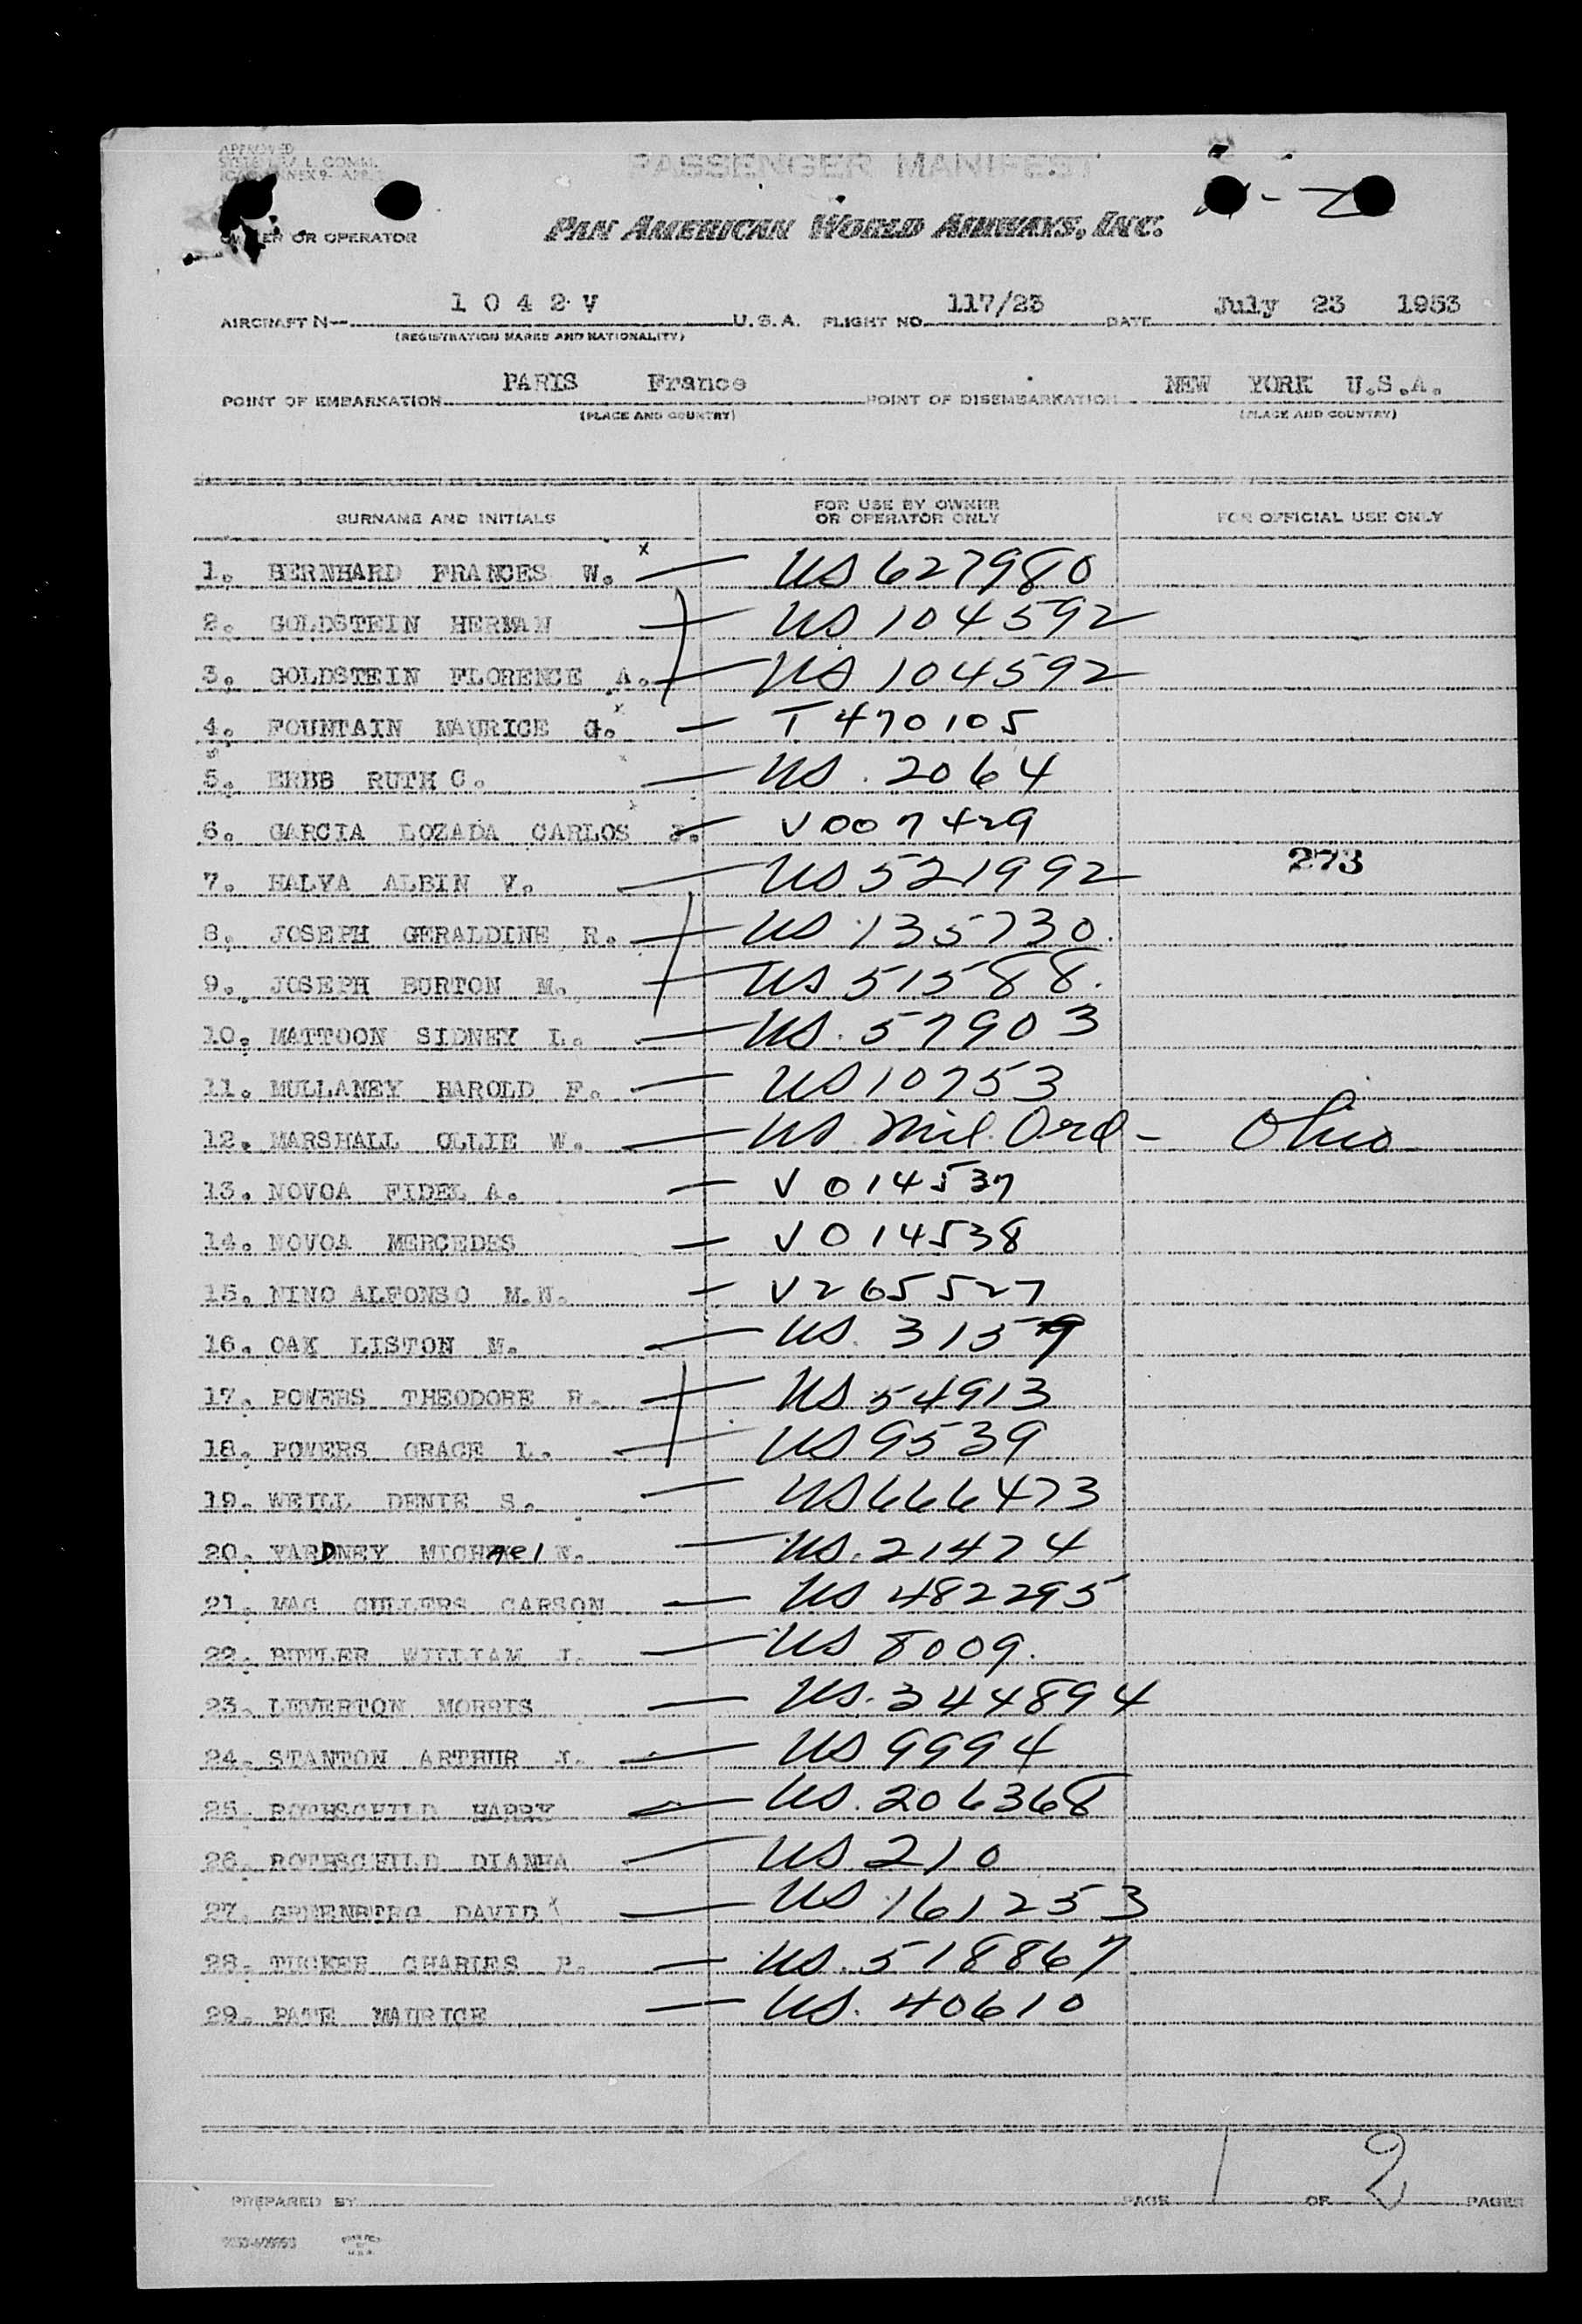 APPROVED
PASSENGER MANIFEST
OWNER OR OPERATOR
PAN AMERICAN WORLD AIRWAYS, INC.
AIRCRAFT N 1 0 4 2 V U.S.A. FLIGHT NO. 117/23 DATE July 23 1953
(REGISTRATION MARKS AND NATIONALITY)
POINT OF EMBARKATION PARIS France POINT OF DISEMBARKATION NEW YORK U.S.A.
(PLACE AND COUNTRY) (PLACE AND COUNTRY)
SURNAME AND INITIALS FOR USE BY OWNER OR OPERATOR ONLY FOR OFFICIAL USE ONLY
1. BERNHARD FRANCES W. x — US 627980
2. GOLDSTEIN HERMAN — US 104592
3. GOLDSTEIN FLORENCE A. — US 104592
4. FOUNTAIN MAURICE G. x — T 470105
5. ERBB RUTH C. — US. 2064
6. GARCIA LOZADA CARLOS J. — V007429
7. HALVA ALBIN V. — US 521992 273
8. JOSEPH GERALDINE R. — US 135730.
9. JOSEPH BURTON M. — US 51588.
10. MATTOON SIDNEY L. — US. 57903
11. MULLANEY HAROLD F. — US 10753
12. MARSHALL OLLIE W. — US Mil. Ord - Ohio
13. NOVOA FIDEL A. — V 014537
14. NOVOA MERCEDES — V 014538
15. NINO ALFONSO M.N. — V265527
16. OAK LISTON M. — US. 3159
17. POWERS THEODORE R. — US 54913
18. POWERS GRACE L. — US 9539
19. WEILL DENIE S. — US 666473
20. YARDNEY MICHAel N. — US. 21474
21. MAC CULLERS CARSON — US 482295
22. BUTLER WILLIAM J. — US 8009.
23. LEVERTON MORRIS — US. 344894
24. STANTON ARTHUR J. — US 9994
25. ROTHSCHILD HARRY — US. 206368
26. ROTHSCHILD DIANHA — US 210
27. GREENBERG DAVID x — US 161253
28. TUCKER CHARLES P. — US. 518867
29. PATE MAURICE — US. 40610
PREPARED BY PAGE 1 OF 2 PAGES